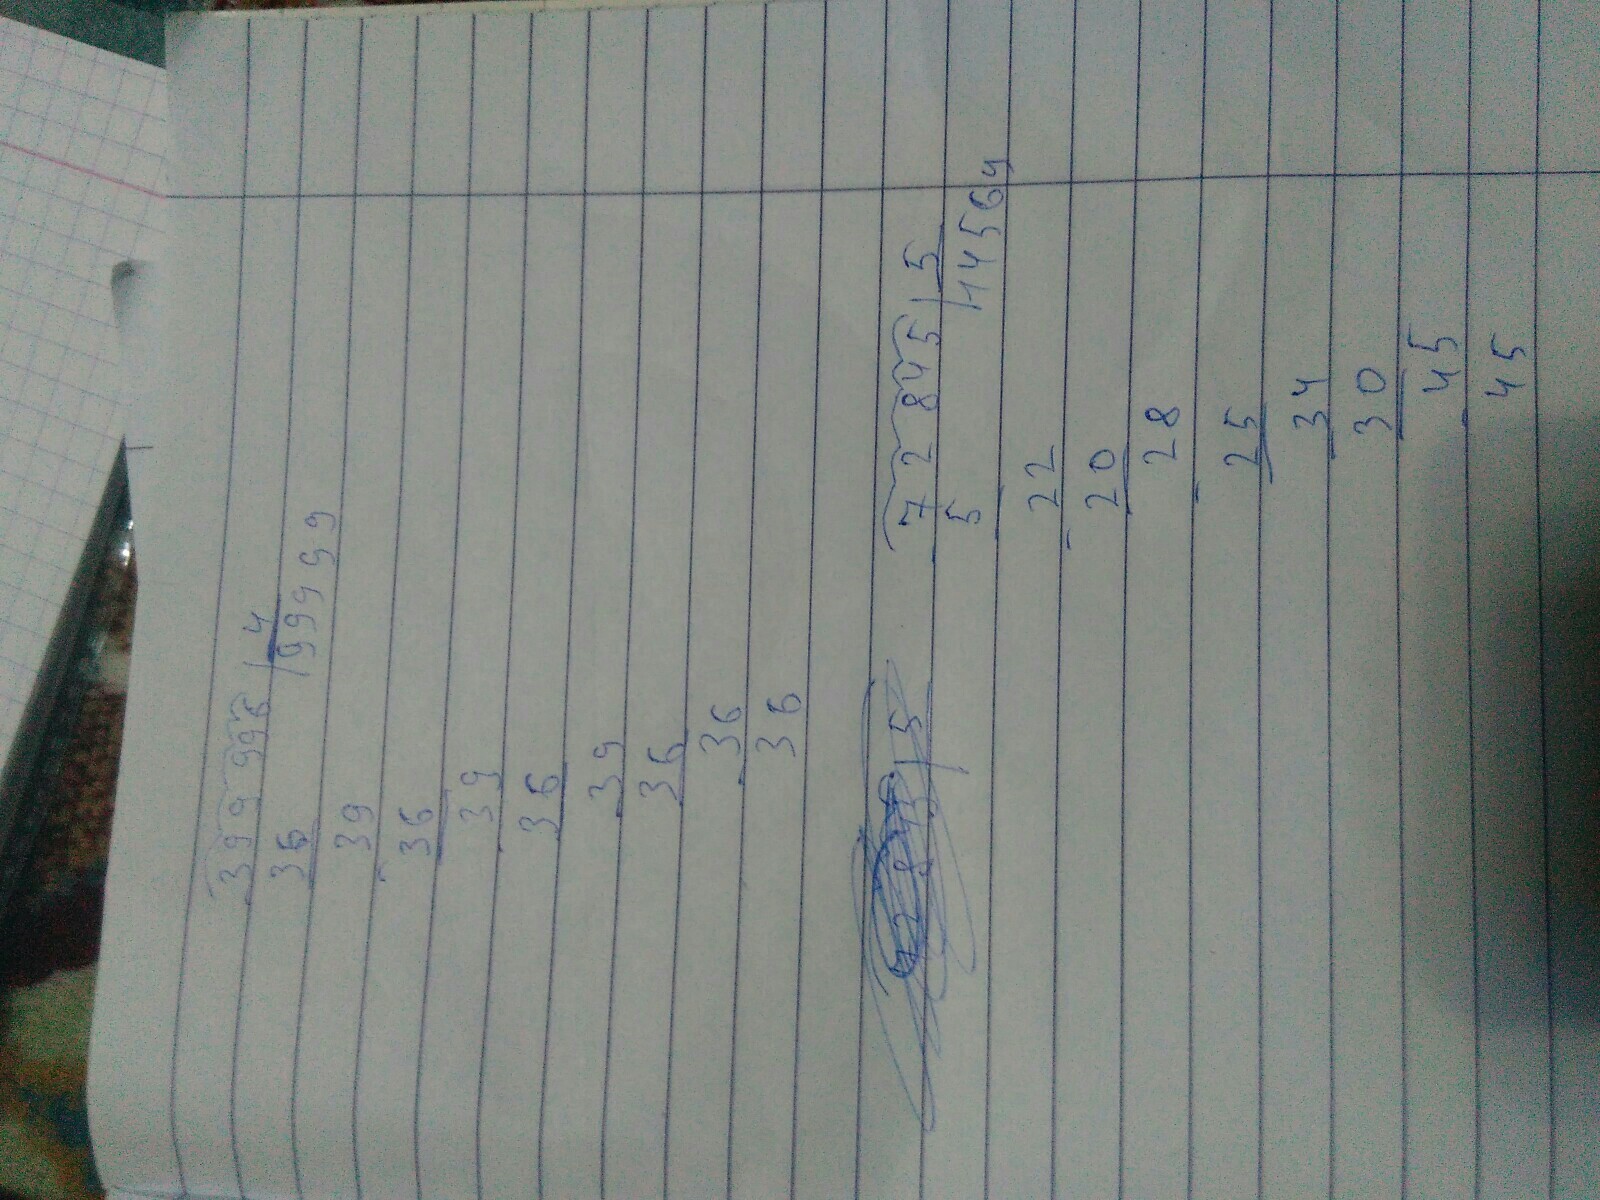 399 996 | 4
36 | 99999
39
36
39
36
39
36
36
36
72845 | 5
5 | 14569
22
20
28
25
34
30
45
45